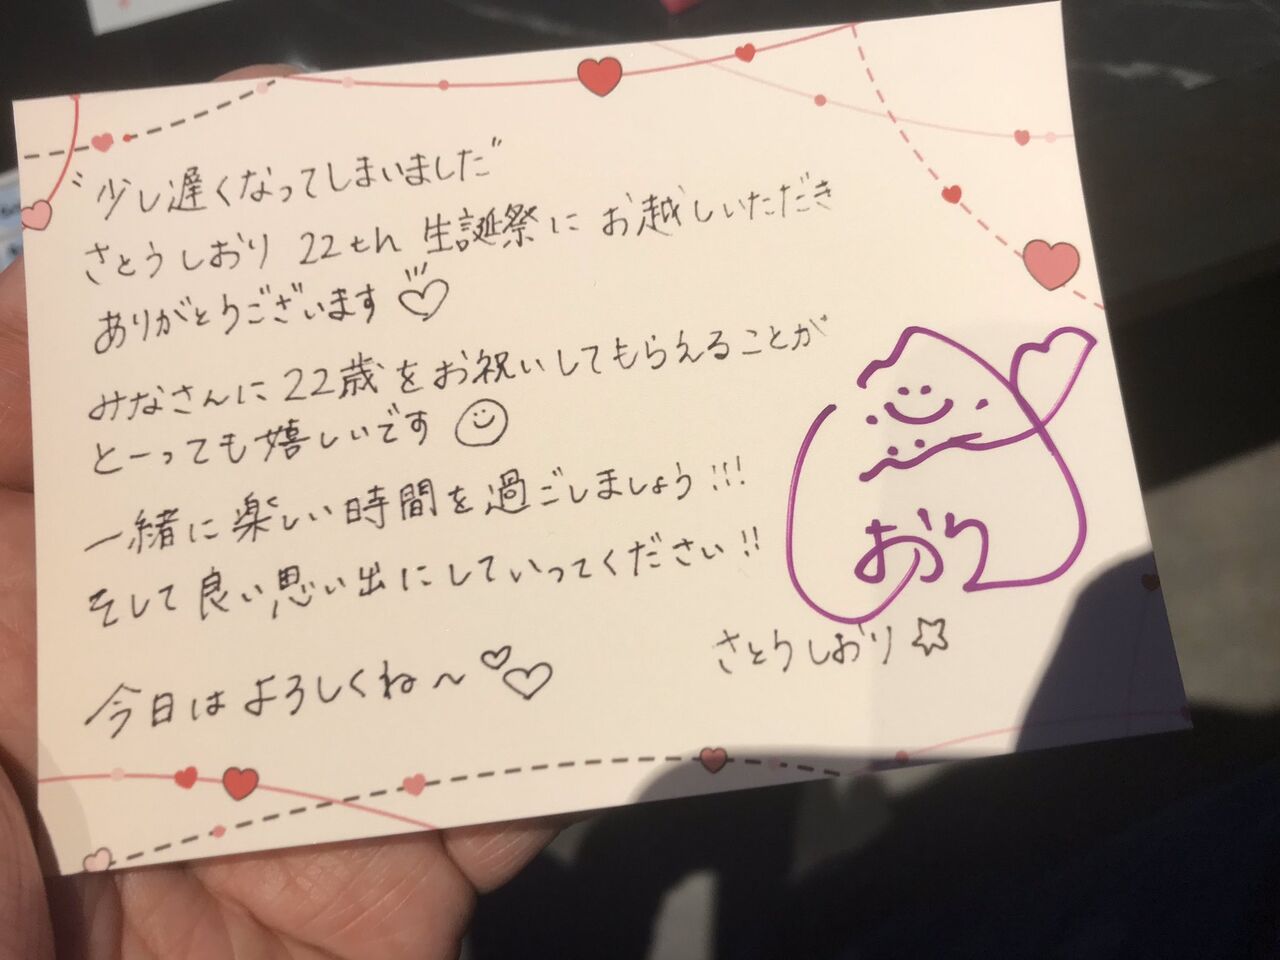 "少し遅くなってしまいました"
さとうしおり 22th 生誕祭に お越しいただき
ありがとうございます♡
みなさんに22歳をお祝いしてもらえることが
とーっても嬉しいです☺
一緒に楽しい時間を過ごしましょう!!!
そして良い思い出にしていってください!!
今日はよろしくね〜♡♡
さとうしおり☆
おり